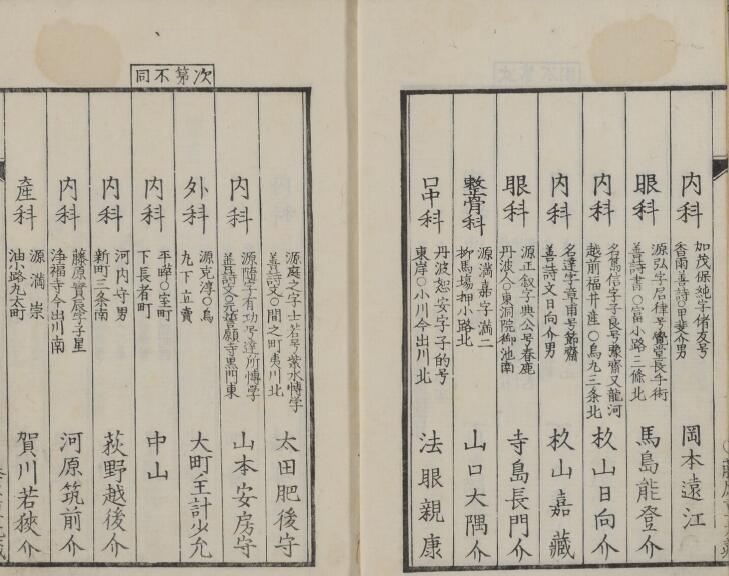 内科
加茂保純字緒友号
香雨善詩〇甲斐介男
岡本遠江
眼科
源弘字君律号覺堂長手術
善詩書〇富小路三條北
馬島能登介
内科
名篤信字子良号豫齋又龍河
越前福井産〇烏丸三条北
杦山日向介
内科
名達字章甫号節齋
善詩文日向介男
杦山嘉藏
眼科
源正叙字典公号春鹿
丹波人〇東洞院御池南
寺島長門介
整骨科
源満嘉字満二
柳馬場押小路北
山口大隅介
口中科
丹波恕安字子的号
東岸〇小川今出川北
法眼親康
次第不同
源庭之字士若号紫水愽学
善詩文〇間之町夷川北
太田肥後守
内科
源随字有功号達所愽学
善詩文〇元誓願寺黒門東
山本安房守
外科
源克淳〇烏
丸下立賣
大町主計少允
内科
平曄〇室町
下長者町
中山
内科
河内守男
新町三条南
荻野越後介
内科
藤原實辰字子星
浄福寺今出川南
河原筑前介
産科
源満崇
油小路丸太町
賀川若狹介